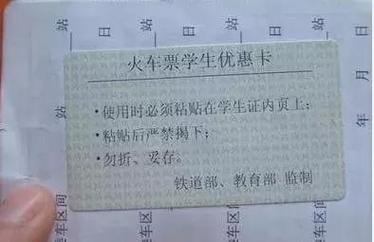 火车票学生优惠卡
·使用时必须粘贴在学生证内页上;
·粘贴后严禁揭下;
·勿折、妥存。
铁道部、教育部 监制
站 日
站 日
站 日
站
年 月 日
乘车区间
车区间
车区间